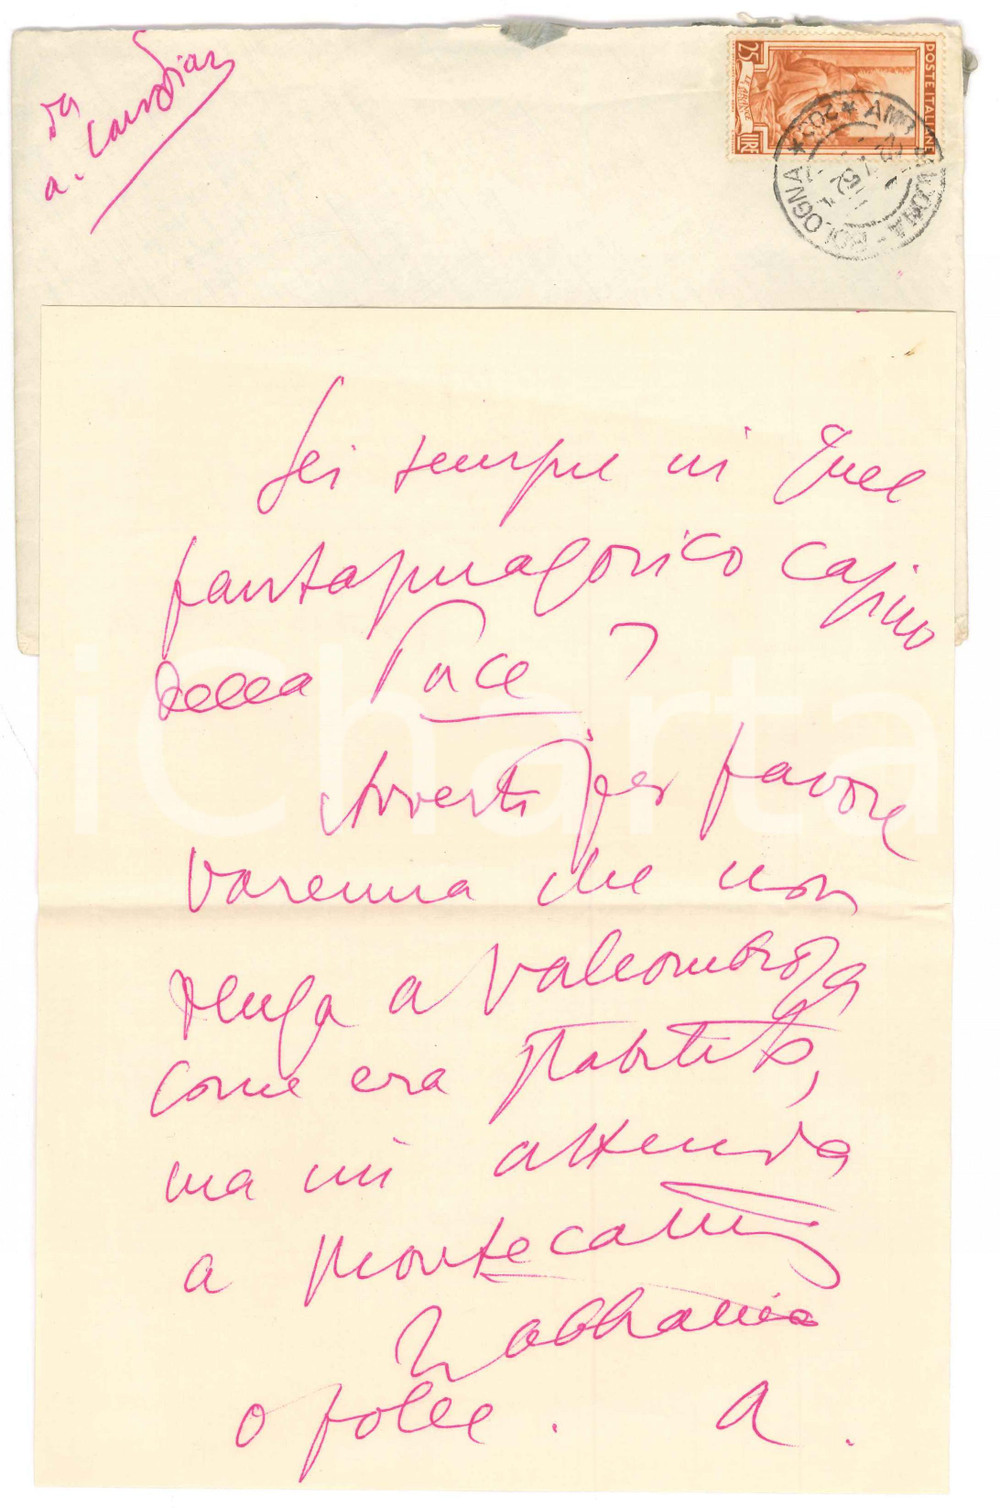 da
a.
25
POSTE ITALIANE
LIRE
BOLOGNA
52
Sei sempre in quel
fantasmagorico casino
della Pace ?
Avverti per favore
Varenna che non
venga a Vallombrosa
come era stabilito,
ma mi attenda
a Montecatini
T'abbraccio
o folle .
A .
iCharta